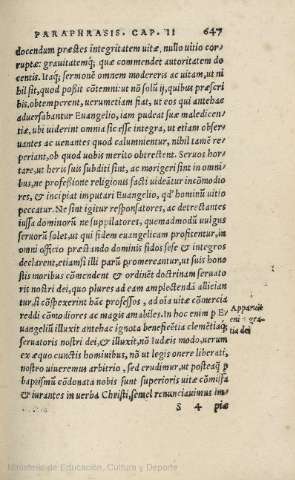 PARAPHRASIS. CAP. II 647
docendum præstes integritatem uitæ, nullo uitio cor
ruptæ: grauitatemq́; quæ commendet autoritatem do
centis. Itaq́; sermonē omnem modereris ac uitam, ut ni
hil sit, quod possit cōtemni: ut nō solū ij, quibus præscri
bis, obtemperent, uerumetiam fiat, ut eos qui antehac
aduersabantur Euangelio, iam pudeat suæ maledicen/
tiæ, ubi uiderint omnia sic esse integra, ut etiam obser/
uantes ac uenantes quod calumnientur, nihil tamē re/
periant, ob quod uobis merito obtrectent. Seruos hor/
tare, ut heris suis subditi sint, ac morigeri sint in omni/
bus, ne professione religionis facti uideātur incōmodio
res, & incipiat imputari Euangelio, qd' hominū uitio
peccatur. Ne sint igitur responsatores, ac detrectantes
iussa dominorū ne suppilatores, quemadmodū uulgus
seruorū solet, ut qui fidem euangelicam profitentur, in
omni officio præstando dominis fidos sese & integros
declarent, etiamsi illi parū promereantur, ut suis hone
stis moribus cōmendent & ordinēt doctrinam seruato
rii nostri dei, quo plures ad eam amplectendā allician
tur, si cōspexerint hāc professos, ad oīa uitæ cōmercia
reddi cōmodiores ac magis amabiles. In hoc enim p E/
uangeliū illuxit antehac ignota beneficētia clemētiaq́;
seruatoris nostri dei, & illuxit, nō Iudæis modo, uerum
ex æquo cunctis hominibus, nō ut legis onere liberati,
nostro uiueremus arbitrio, sed erudimur, ut posteaq̄ p
baptismū cōdonata nobis sunt superioris uitæ cōmissa
& iurantes in uerba Christi, semel renunciauimus im/
Apparuit
enī gra-
tia dei
S 4 pie
Ministerio de Educación, Cultura y Deporte